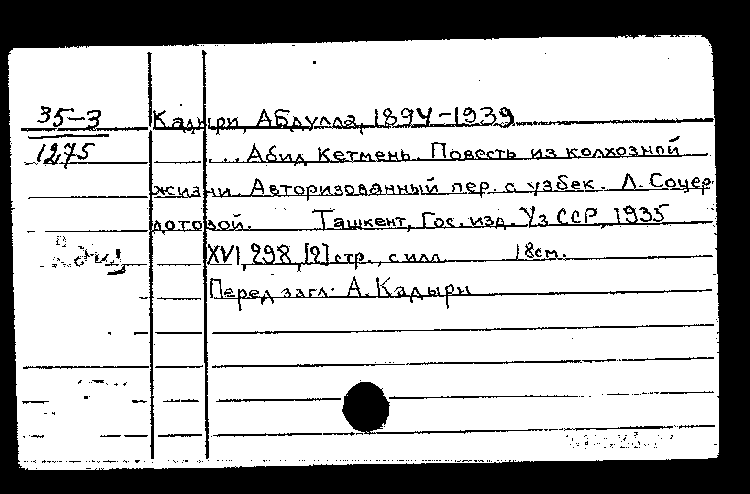 35-3
1275
Кадыри, Абдулла, 1894-1939
... Абид Кетмень. Повесть из колхозной
жизни. Авторизованный пер. с узбек. Л. Соцер
дотовой. Ташкент, Гос. изд. Уз ССР, 1935
XVI, 298, [2] стр., с илл. 18 см.
Перед загл: А. Кадыри